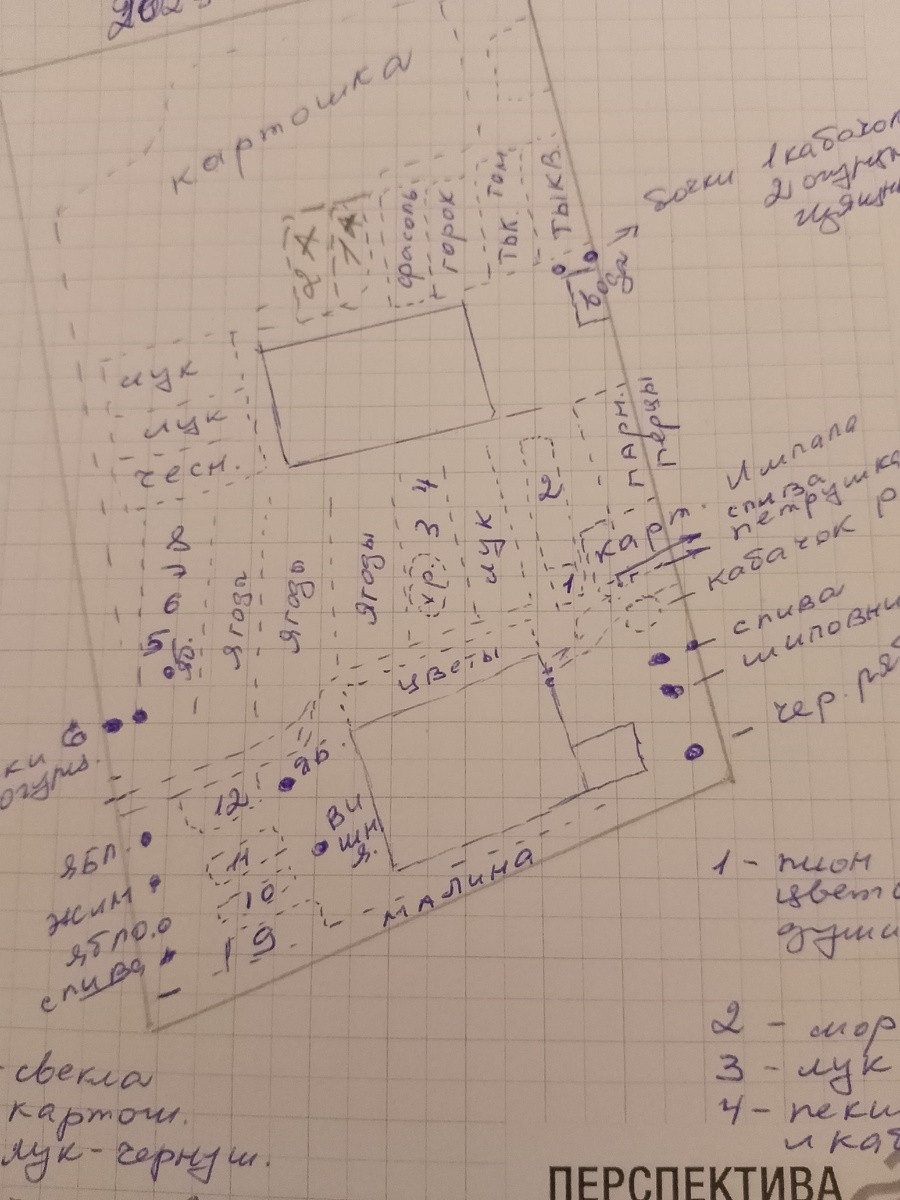 картошка
бочки 1 кабачок
2 огурцы
вода
фасоль
горок
тык. том
тыкв.
лук
лук
чесн.
парн.
перцы
Импала
слива
петрушка
карт.
кабачок р
слива
шиповни
чер. ряб
8
7
6
5
яб.
ягоды
ягоды
ягоды
хр. 3 4
лук
2
1
цветы
6
ки
огурц.
яб.
12
ви
шн
я.
11
10
9
ябл.
жим
ябло.
слива
малина
1 - пион
цвето
души
2 - мор
3 - лук
4 - пеки
и каб
- свекла
картош.
лук - чернуш.
ПЕРСПЕКТИВА